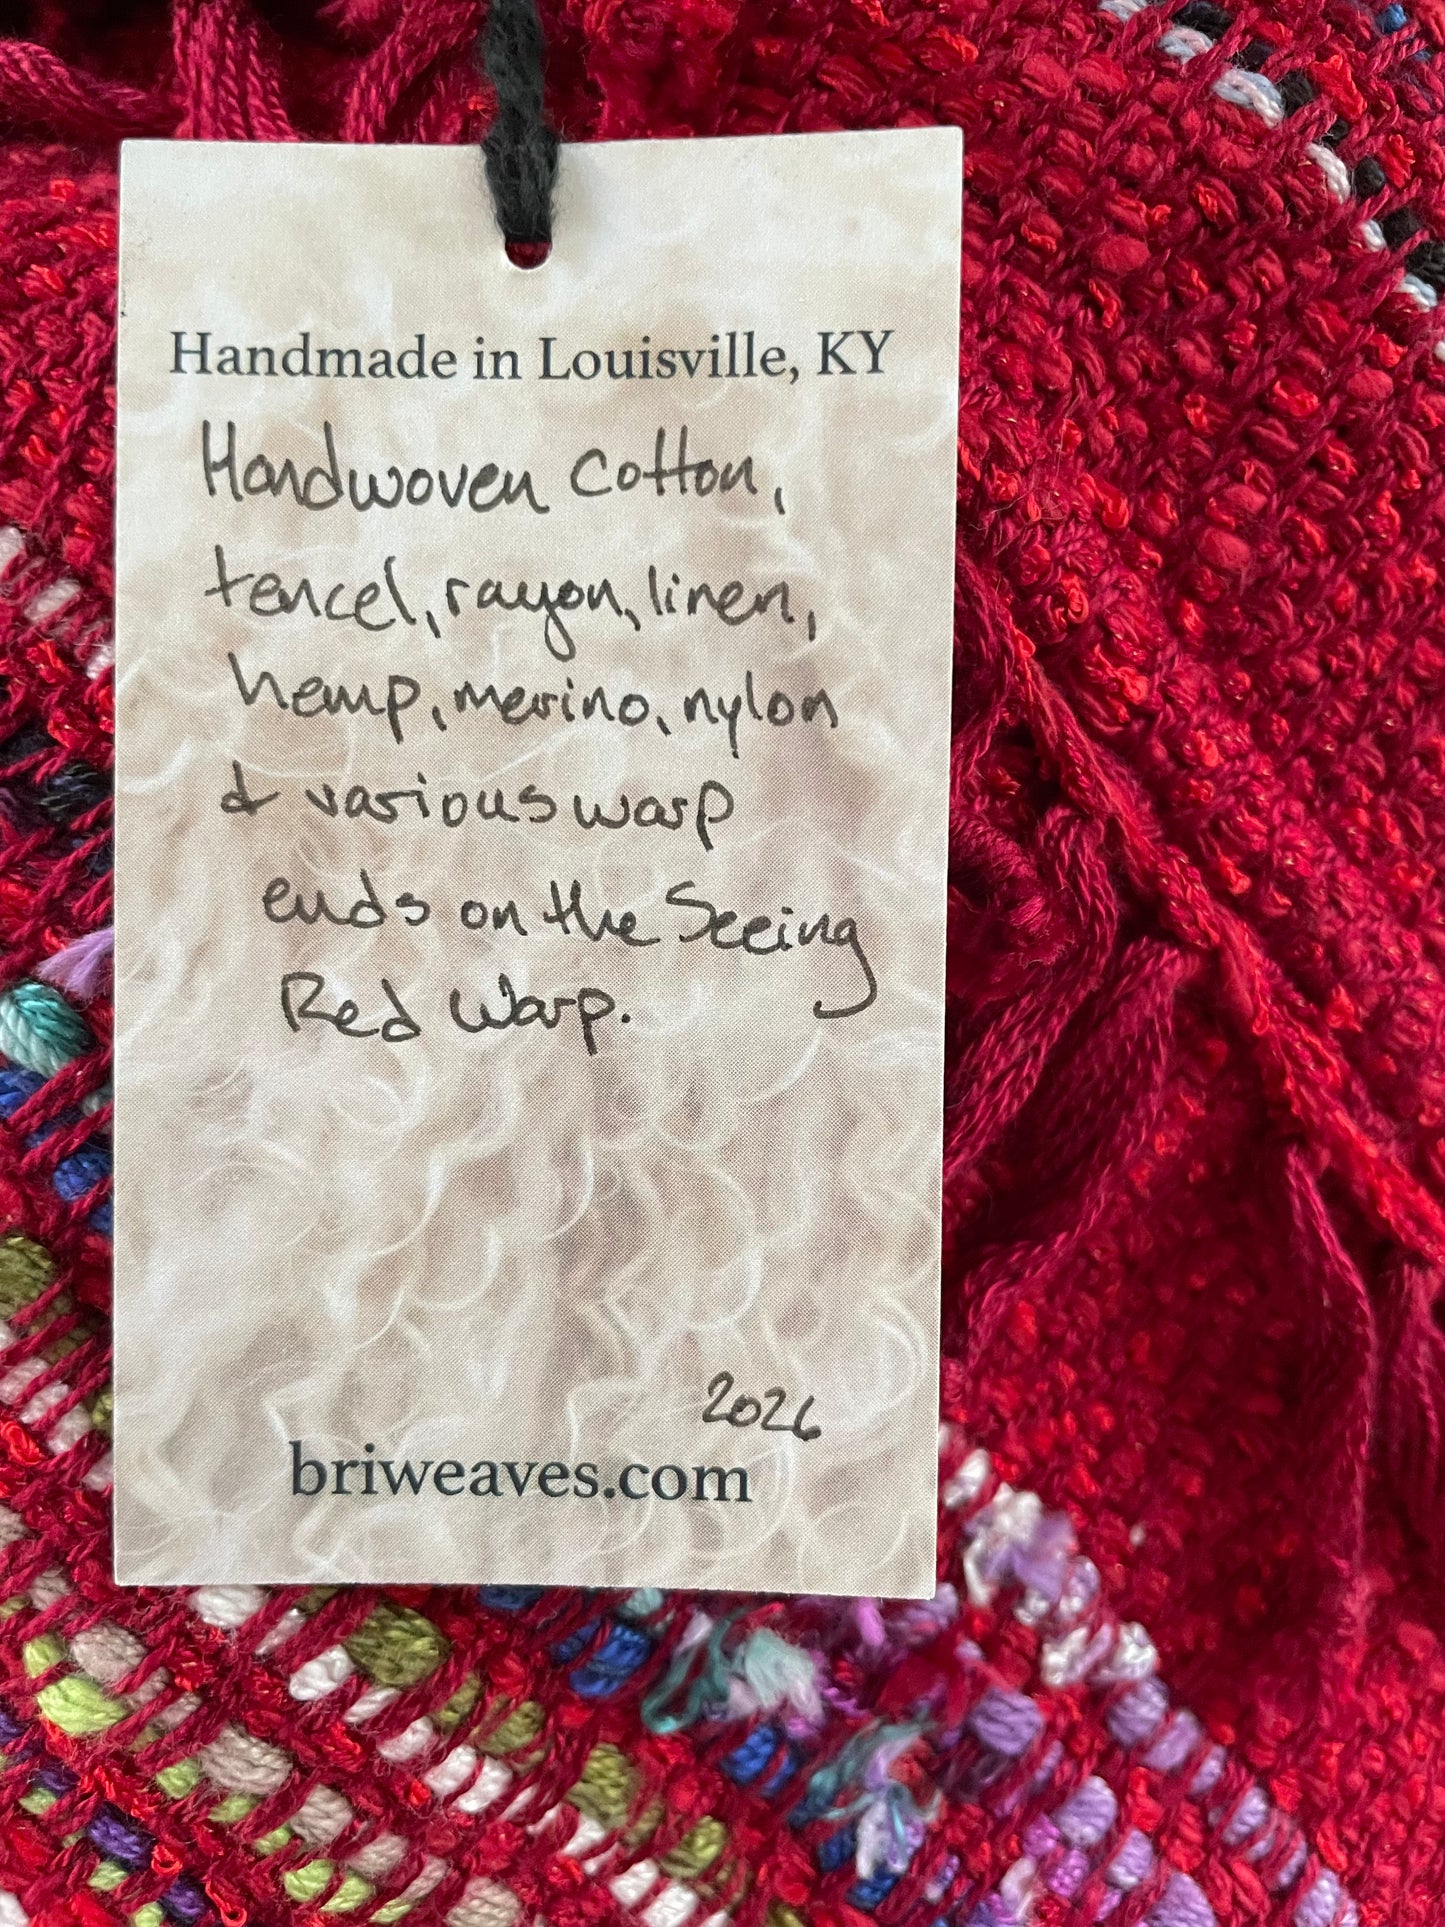 Handmade in Louisville, KY
Handwoven cotton,
tencel, rayon, linen,
hemp, merino, nylon
& various warp
ends on the Seeing
Red Warp.
2026
briweaves.com